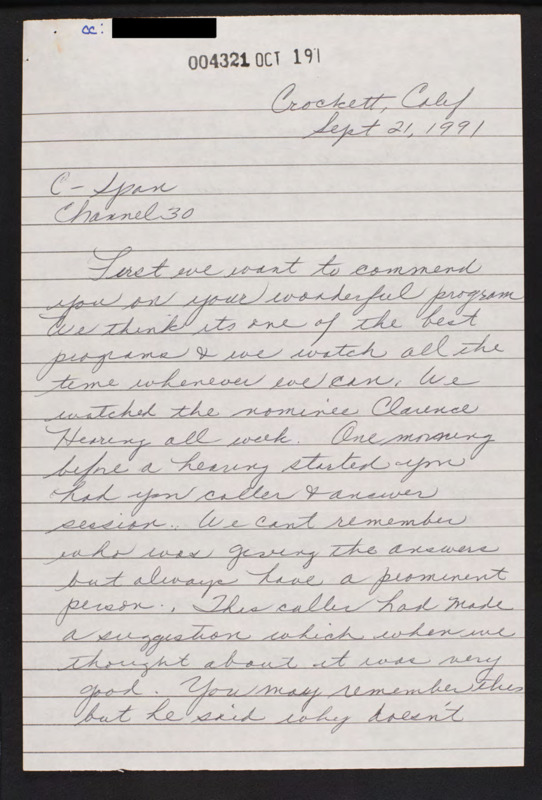 cc:
004321 OCT 19 1
Crockett, Calif
Sept 21, 1991
C-Span
Channel 30
First we want to commend
you on your wonderful program
We think its one of the best
programs & we watch all the
time whenever we can. We
watched the nominee Clarence
Hearing all week. One morning
before a hearing started you
had your caller & answer
session. We cant remember
who was giving the answers
but always have a prominent
person. This caller had made
a suggestion which when we
thought about it was very
good. You may remember this
but he said why doesn't